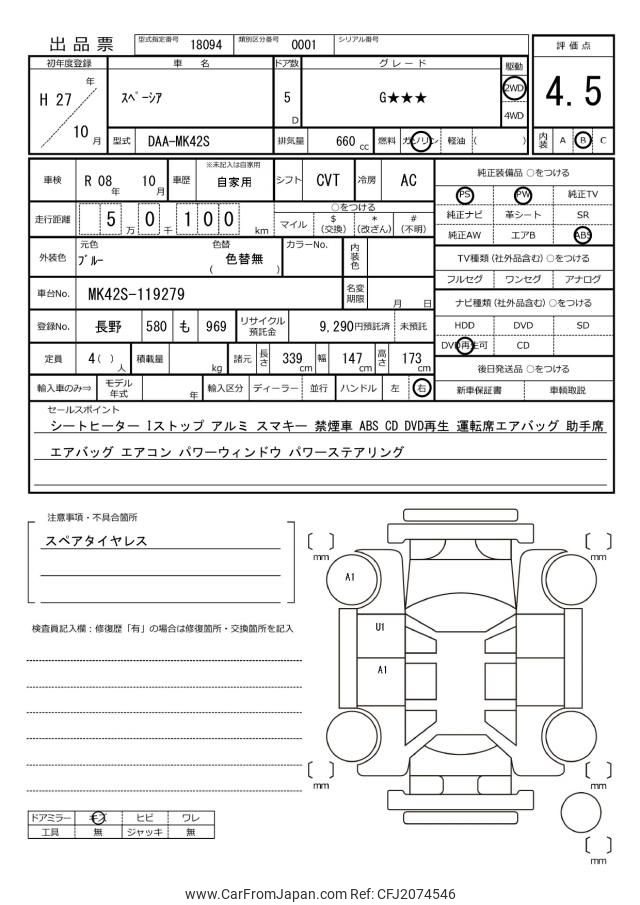 出品票 型式指定番号 18094 類別区分番号 0001 シリアル番号
評価点
4.5
内装 A B C
初年度登録 車名 ドア数 グレード 駆動
H 27 年 10 月
スペーシア 5 D G★★★ 2WD
4WD
型式 DAA-MK42S 排気量 660 cc 燃料 ガソリン 軽油 ( )
車検 R 08 年 10 月 車歴 ※未記入は自家用 自家用 シフト CVT 冷房 AC
走行距離 5 万 0 千 1 0 0 km
○をつける
マイル $ (交換) * (改ざん) # (不明)
外装色 元色 ブルー 色替 ( 色替無 ) カラーNo. 内装色
車台No. MK42S-119279 名変期限 月 日
登録No. 長野 580 も 969 リサイクル預託金 9,290円預託済 未預託
定員 4( )人 積載量 kg 諸元 長さ 339 cm 幅 147 cm 高さ 173 cm
輸入車のみ⇒ モデル年式 年 輸入区分 ディーラー 並行 ハンドル 左 右
純正装備品 ○をつける
PS PW 純正TV
純正ナビ 革シート SR
純正AW エアB ABS
TV種類 (社外品含む) ○をつける
フルセグ ワンセグ アナログ
ナビ種類 (社外品含む) ○をつける
HDD DVD SD
DVD再生可 CD
後日発送品 ○をつける
新車保証書 車輌取説
セールスポイント
シートヒーター Iストップ アルミ スマキー 禁煙車 ABS CD DVD再生 運転席エアバッグ 助手席
エアバッグ エアコン パワーウィンドウ パワーステアリング
注意事項・不具合箇所
スペアタイヤレス
検査員記入欄：修復歴「有」の場合は修復箇所・交換箇所を記入
ドアミラー キズ ヒビ ワレ
工具 無 ジャッキ 無
[ ] mm
[ ] mm
A1
U1
A1
[ ] mm
[ ] mm
[ ] mm
www.CarFromJapan.com Ref: CFJ2074546